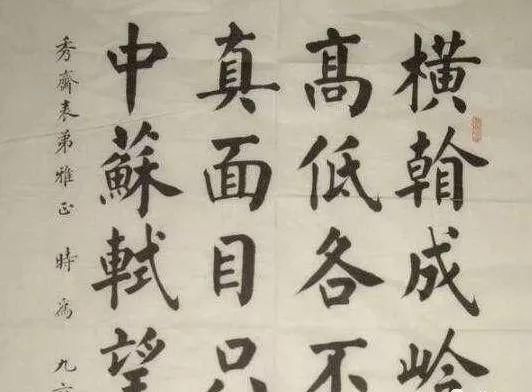 横成岭
髙低各不
真面目只
中蘇軾望
秀齋表弟雅正 時為 九六